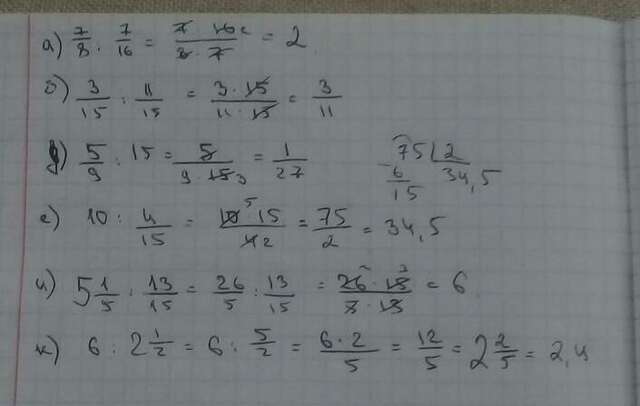 а) 7/8 : 7/16 = 7 · 16 2 / 8 · 7 = 2
б) 3/15 : 11/15 = 3 · 15 / 11 · 15 = 3/11
д) 5/9 : 15 = 5 / 9 · 15 3 = 1/27
75 | 2
-6 34,5
15
е) 10 : 4/15 = 10 5 · 15 / 4 2 = 75/2 = 34,5
и) 5 1/5 : 13/15 = 26/5 : 13/15 = 26 2 · 15 3 / 5 · 13 = 6
к) 6 : 2 1/2 = 6 : 5/2 = 6 · 2 / 5 = 12/5 = 2 2/5 = 2,4